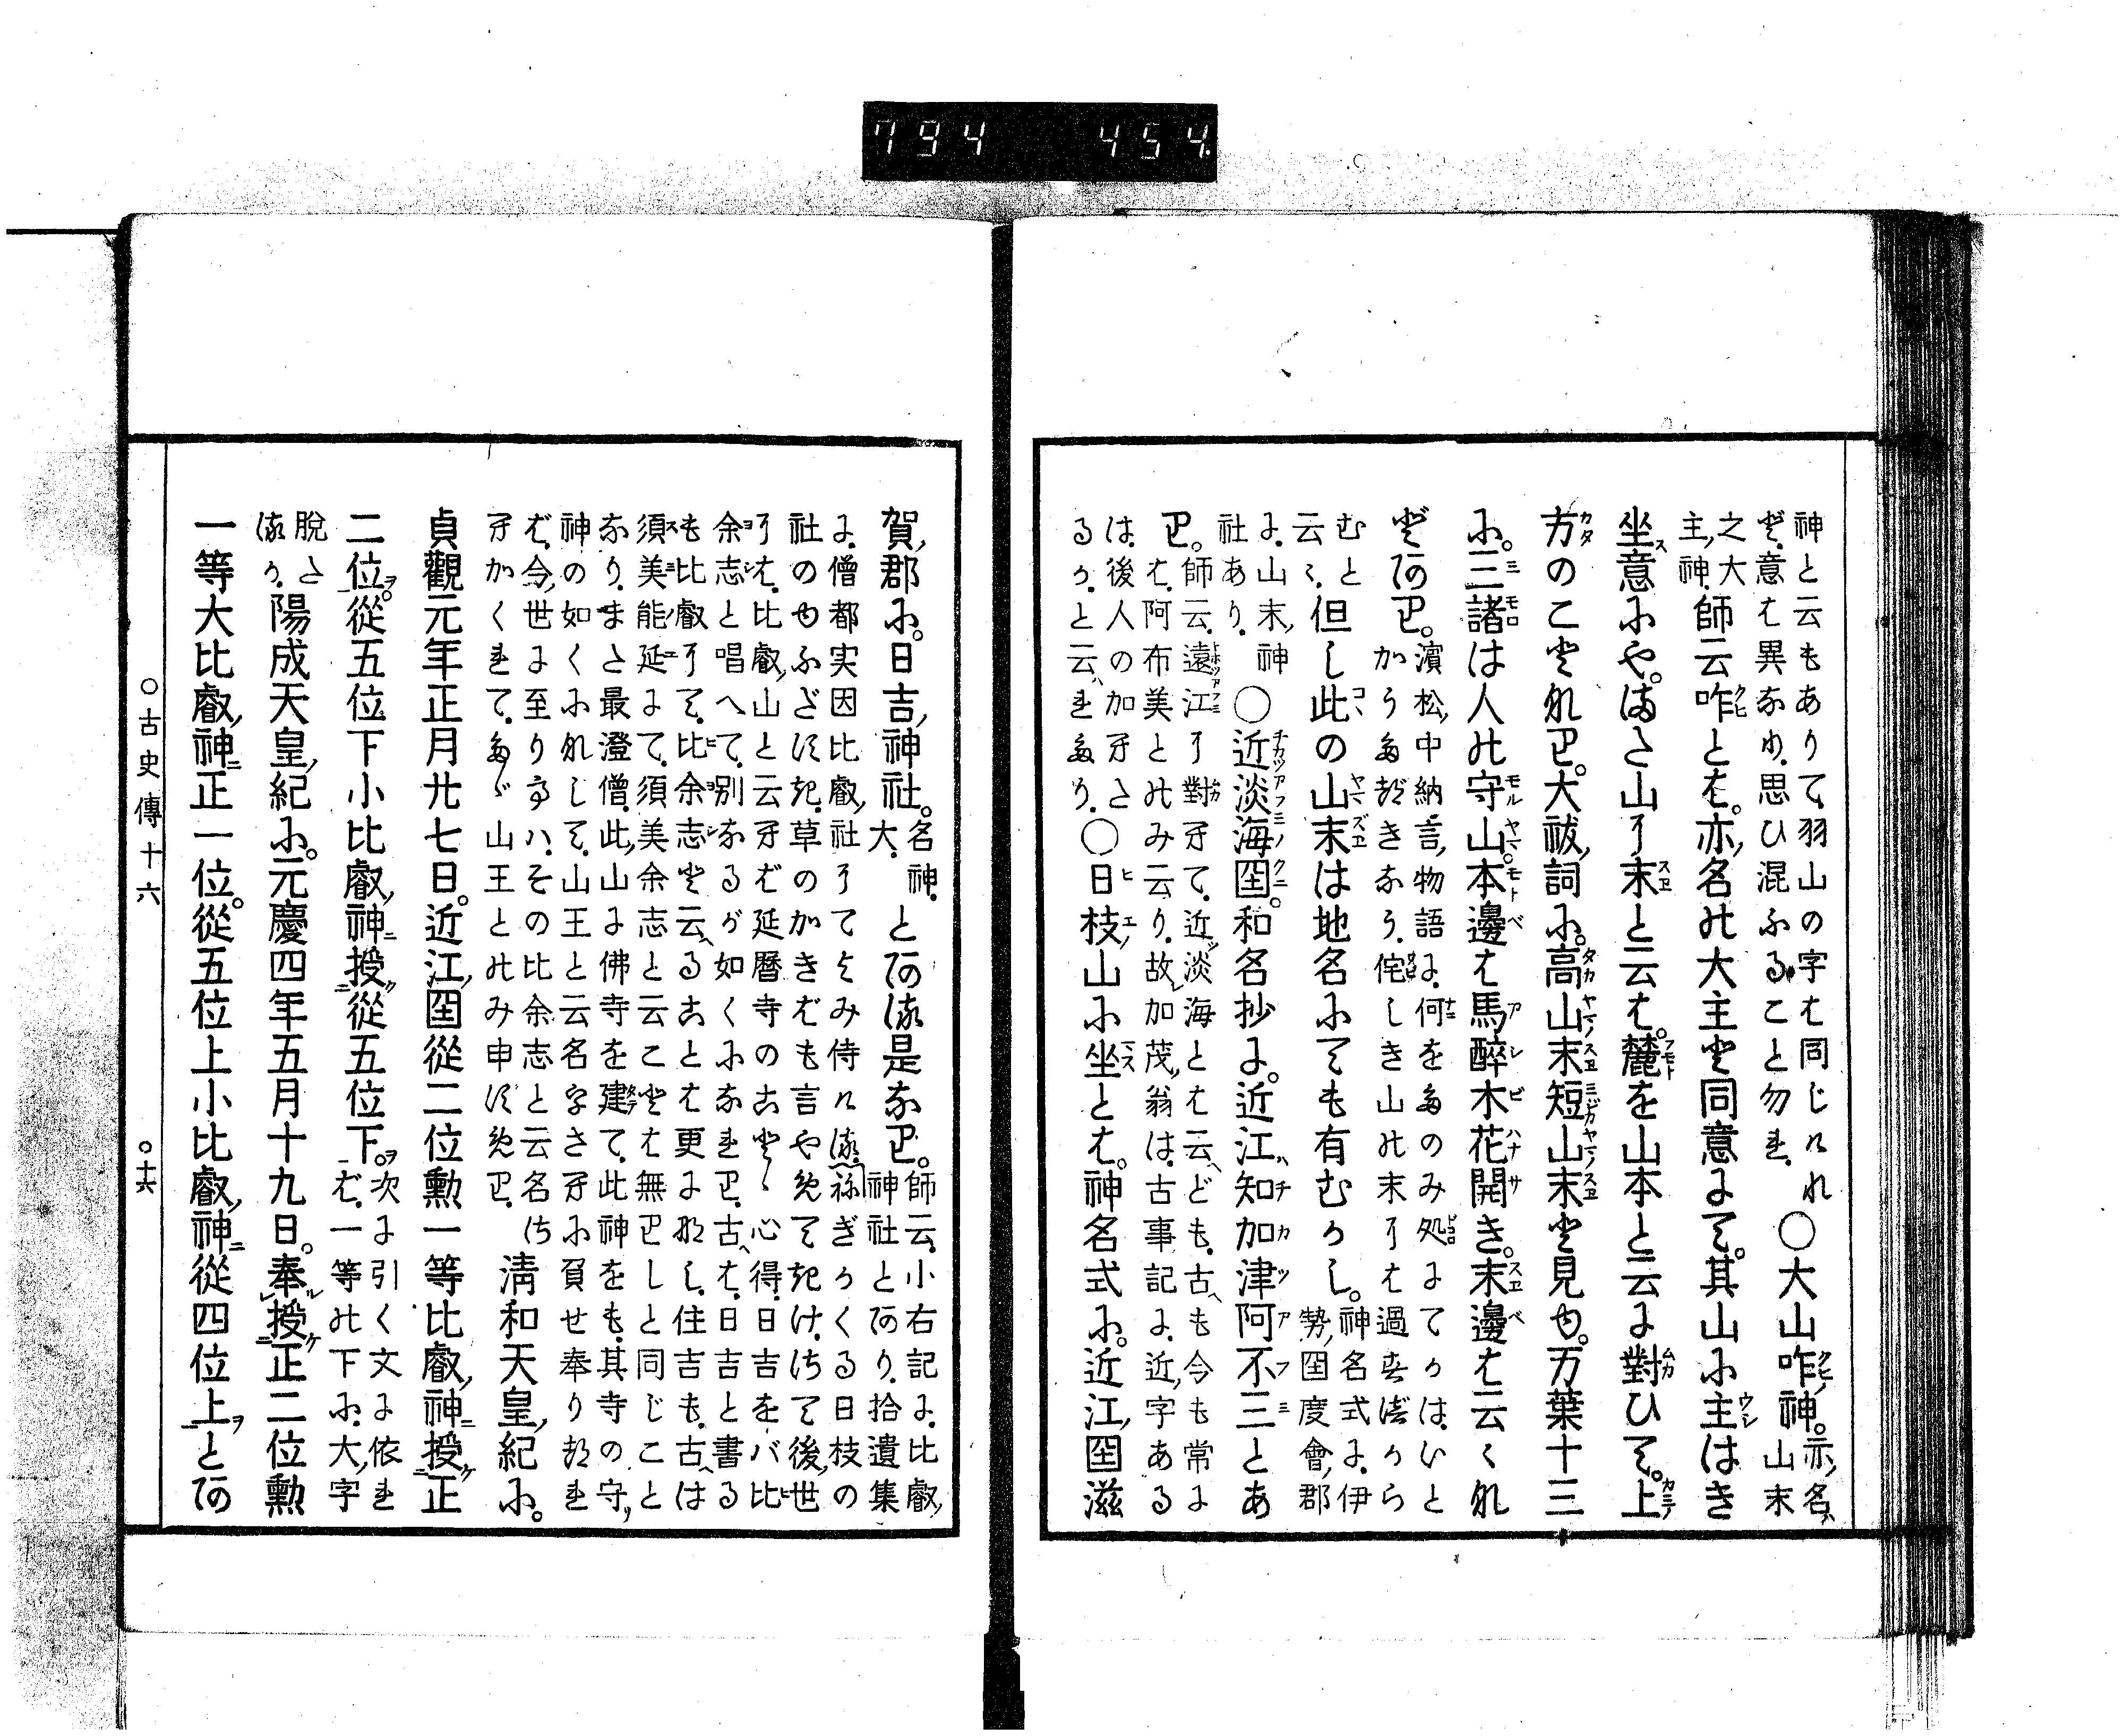 794 454
神と云もありて、羽山の字は同じけれ
ど、意は異なり、思ひ混ふることなかれ、○大山咋神。亦名山末
之大主神、師云咋とは。亦名の大主と同意にて。其山に主はき
坐意にや。また山の末と云は。麓を山本と云に對ひて。上
方のことなり。大祓詞に。高山末短山末と見ゆ。万葉十三
に。三諸は人の守山。本邊は馬醉木花開き。末邊は云々な
どあり。濱松中納言物語に、何をたのみ処にてかは、いと
かうたづきなう、侘しき山の末には過すべから
むと云々、但し此の山末は地名にても有むかし。神名式に、伊勢国度會郡
に、山末神社あり、○近淡海国。和名抄に。近江知加津阿不三とあ
り。師云、遠江に對へて、近淡海とは云へども、古へも今も常に
は、阿布美とのみ云り、故加茂翁は、古事記に、近字ある
は、後人の加へたるか、と云れたり、○日枝山に坐とは。神名式に。近江国滋
賀郡に。日吉神社。名神大。とある是なり。師云、小右記に、比叡神社とあり、拾遺集
に、僧都実因比叡社にてよみ侍ける、祢ぎかくる日枝の
社のゆふだすき、草のかき葉も言やめてきけ、さて後世
には、比叡山と云へば延暦寺のことゝ心得、日吉をバ比
余志と唱へて、別なるが如くになれり、古へは、日吉と書る
も比叡にて、比余志と云へることは更に無し、住吉も、古へは
須美能延にて、須美余志と云ことは無りしと同じこと
なり、また最澄僧、此山に佛寺を建て、此神をも、其寺の守
神の如くになして、山王と云名字さへに負せ奉りつれ
ば、今世に至りてハ、その比余志と云名さ
へかくれて、たゞ山王とのみ申すめり、清和天皇紀に。
貞觀元年正月廿七日。近江国從二位勲一等比叡神授正
二位。從五位下小比叡神授從五位下。次に引く文に依れば、一等の下に、大字
脱たるか、陽成天皇紀に。元慶四年五月十九日。奉授正二位勲
一等大比叡神正一位。從五位上小比叡神從四位上とあ
○古史傳十六　○十六